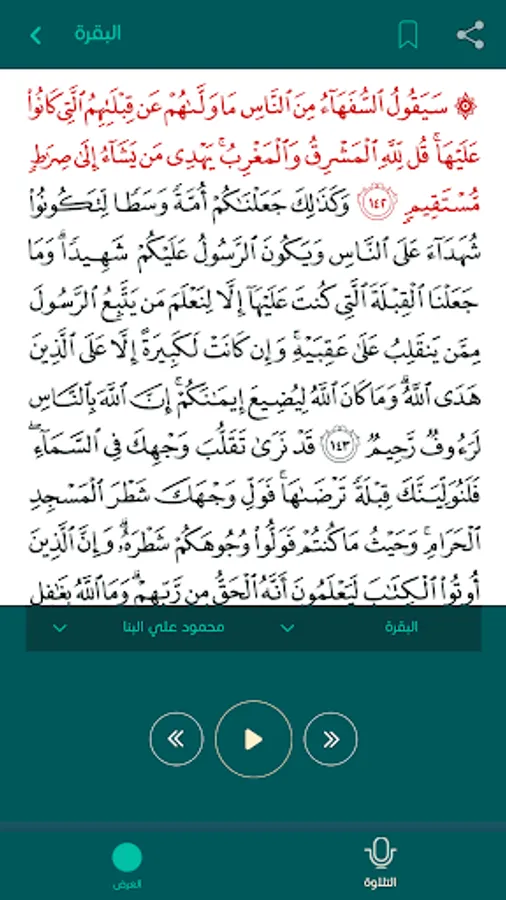 البقرة
۞ سَيَقُولُ ٱلسُّفَهَآءُ مِنَ ٱلنَّاسِ مَا وَلَّىٰهُمْ عَن قِبْلَتِهِمُ ٱلَّتِى كَانُوا۟
عَلَيْهَا ۚ قُل لِّلَّهِ ٱلْمَشْرِقُ وَٱلْمَغْرِبُ ۚ يَهْدِى مَن يَشَآءُ إِلَىٰ صِرَٰطٍ
مُّسْتَقِيمٍ ١٤٢ وَكَذَٰلِكَ جَعَلْنَٰكُمْ أُمَّةً وَسَطًا لِّتَكُونُوا۟
شُهَدَآءَ عَلَى ٱلنَّاسِ وَيَكُونَ ٱلرَّسُولُ عَلَيْكُمْ شَهِيدًا ۗ وَمَا
جَعَلْنَا ٱلْقِبْلَةَ ٱلَّتِى كُنتَ عَلَيْهَآ إِلَّا لِنَعْلَمَ مَن يَتَّبِعُ ٱلرَّسُولَ
مِمَّن يَنقَلِبُ عَلَىٰ عَقِبَيْهِ ۚ وَإِن كَانَتْ لَكَبِيرَةً إِلَّا عَلَى ٱلَّذِينَ
هَدَى ٱللَّهُ ۗ وَمَا كَانَ ٱللَّهُ لِيُضِيعَ إِيمَٰنَكُمْ ۚ إِنَّ ٱللَّهَ بِٱلنَّاسِ
لَرَءُوفٌ رَّحِيمٌ ١٤٣ قَدْ نَرَىٰ تَقَلُّبَ وَجْهِكَ فِى ٱلسَّمَآءِ ۖ
فَلَنُوَلِّيَنَّكَ قِبْلَةً تَرْضَىٰهَا ۚ فَوَلِّ وَجْهَكَ شَطْرَ ٱلْمَسْجِدِ
ٱلْحَرَامِ ۚ وَحَيْثُ مَا كُنتُمْ فَوَلُّوا۟ وُجُوهَكُمْ شَطْرَهُۥ ۗ وَإِنَّ ٱلَّذِينَ
أُوتُوا۟ ٱلْكِتَٰبَ لَيَعْلَمُونَ أَنَّهُ ٱلْحَقُّ مِن رَّبِّهِمْ ۗ وَمَا ٱللَّهُ بِغَٰفِلٍ
البقرة
محمود علي البنا
التلاوة
العرض